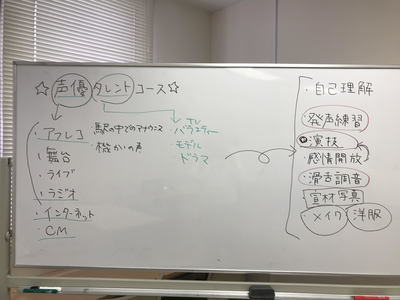 ☆声優タレントコース☆
・アフレコ
・舞台
・ライブ
・ラジオ
・インターネット
・CM
・駅の中でのアナウンス
・機かいの声
TV
・バラエティー
・モデル
・ドラマ
・自己理解
・発声練習
・演技
・感情開放
・滑舌調音
・宣材写真
・メイク 洋服